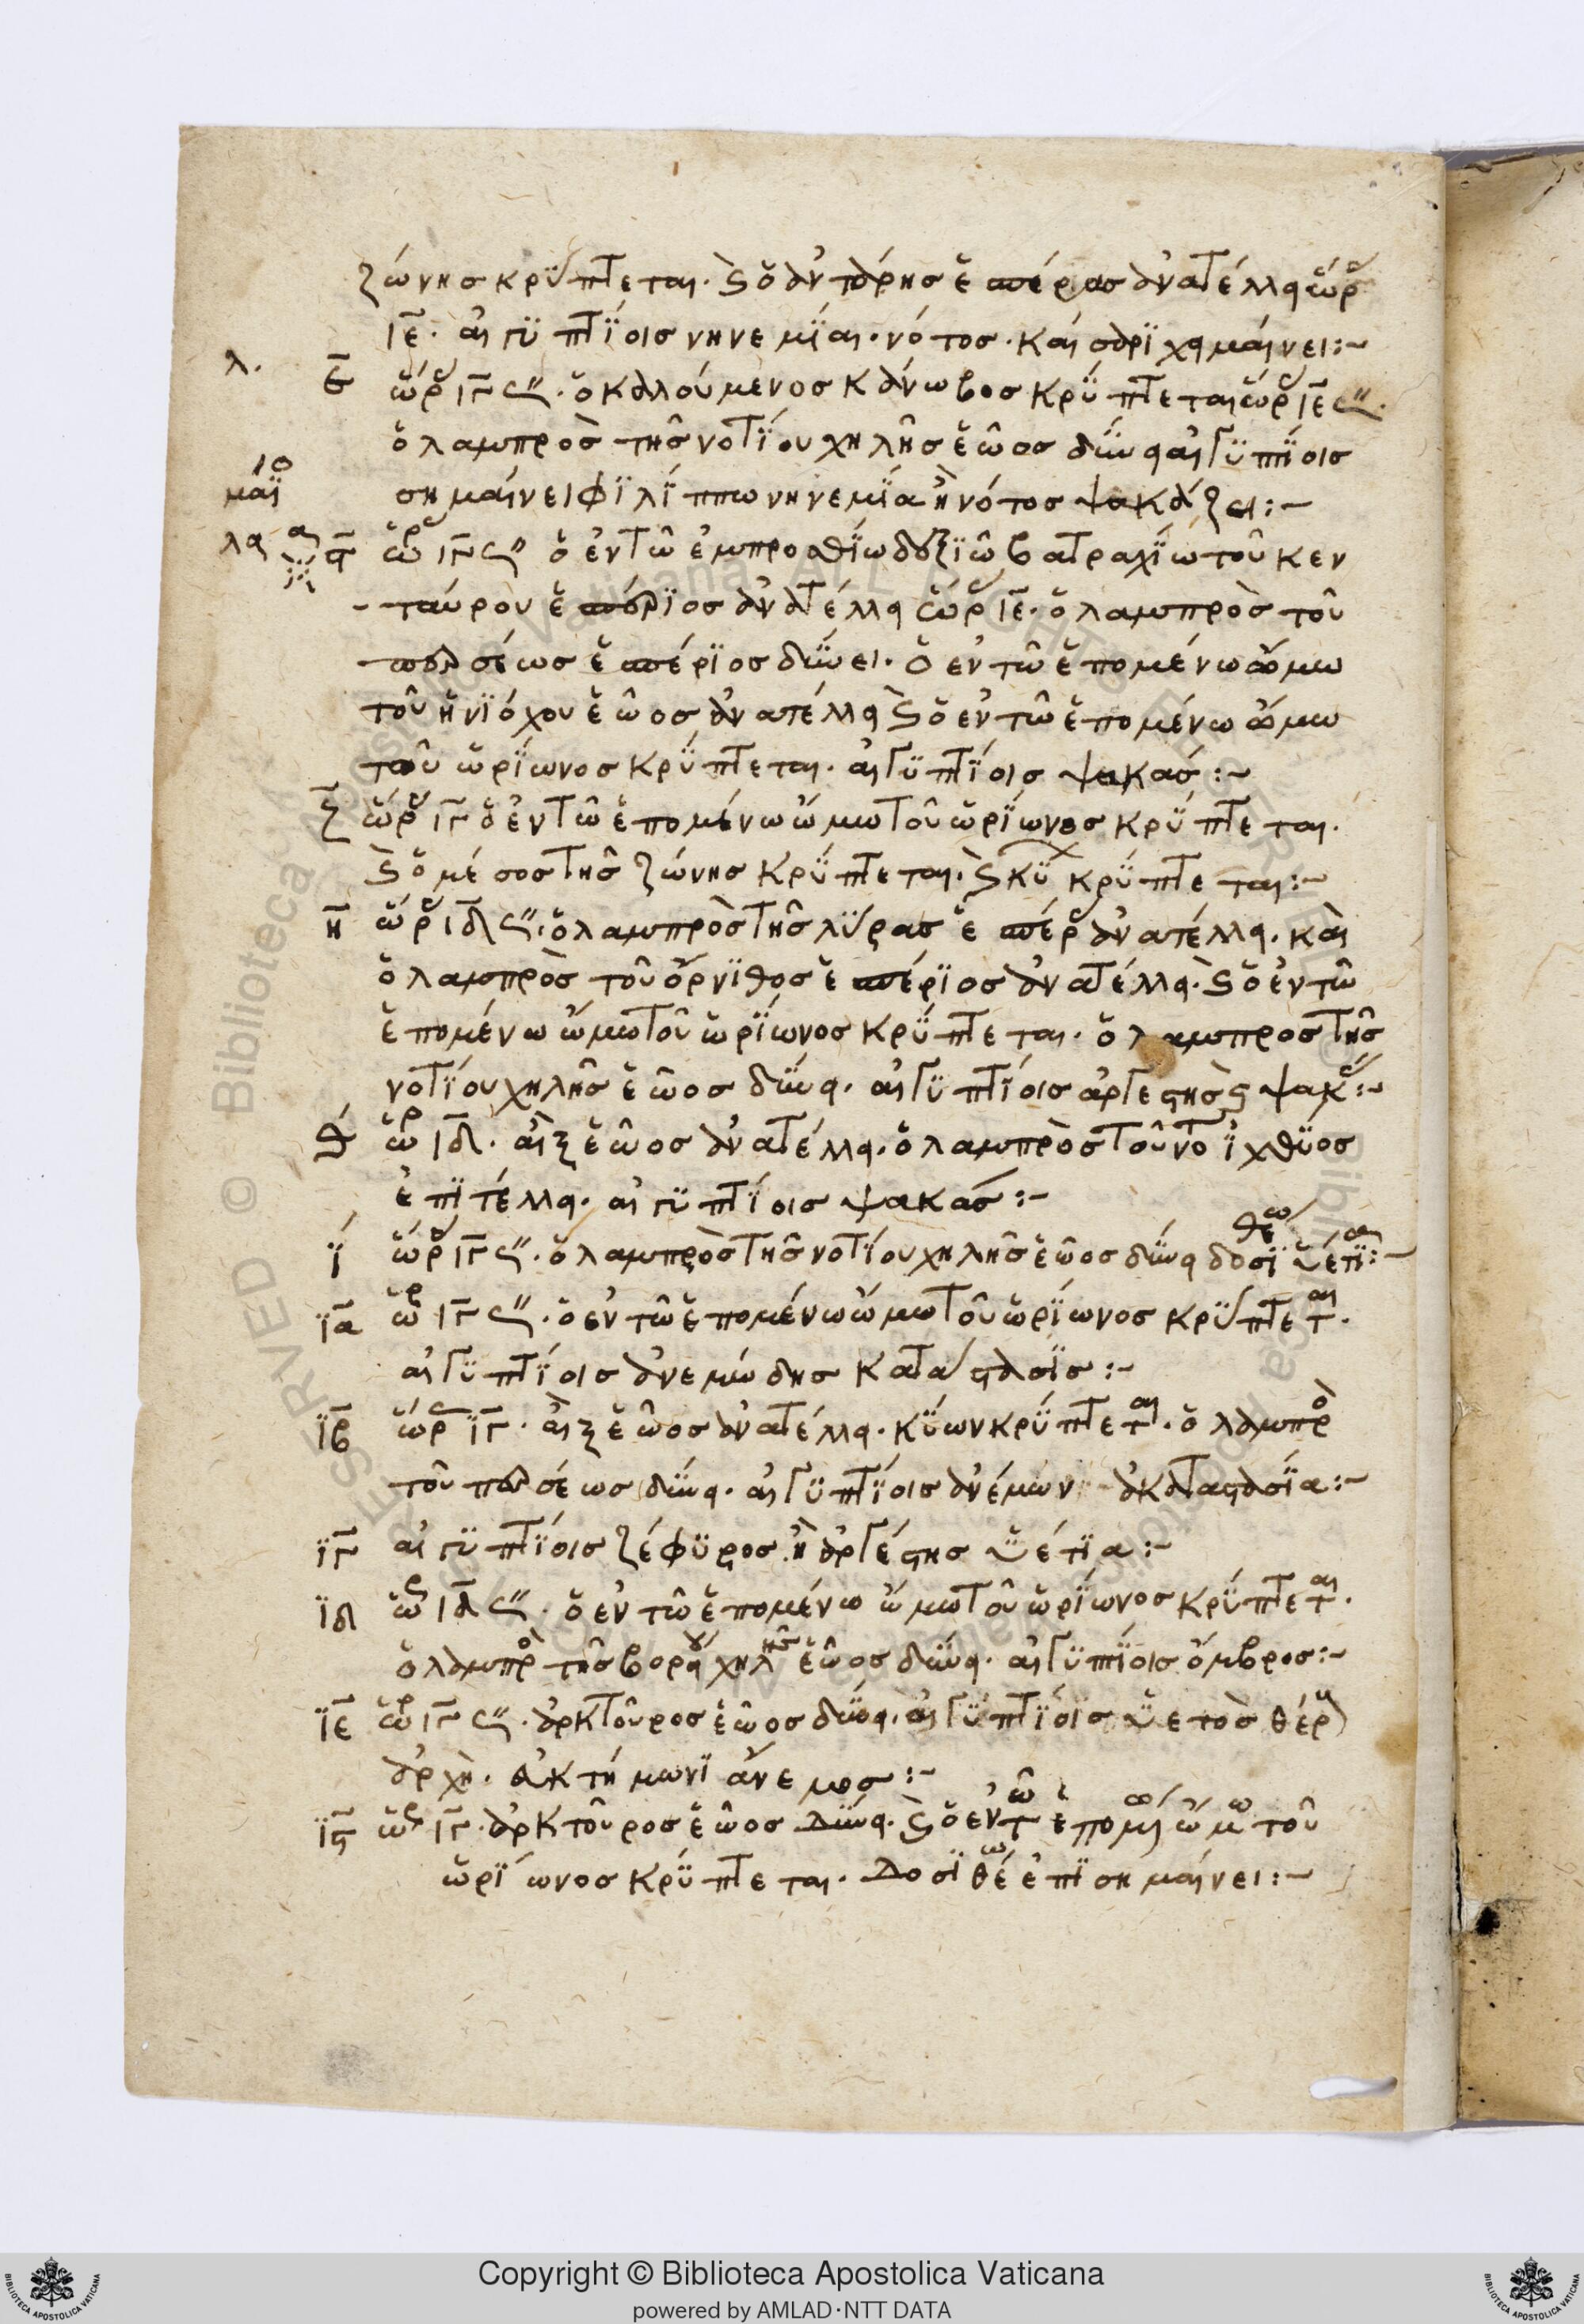 ζώνης κρύπτεται. καὶ ὁ ἀντάρης ἑσπέρας ἀνατέλλει ὡρ
ιε. αἰγυπτίοις νηνεμίαι. νότος. καὶ
λ. ε ὡρ ιγ 𐅵. ὁ καλούμενος κάνωβος κρύπτεται ὡρ ιε 𐅵.
ὁ λαμπρὸς τῆς νοτίου χηλῆς ἑῶος δύνει αἰγυπτίοις
μάϊ σημαίνει φιλίππω νηνεμία ἢ νότος ψακάζει:~
λα α ϛ ὡρ ιγ 𐅵 ὁ ἐν τῶ ἐμπροσθίω δεξιῶ βατραχίω τοῦ κεν
ταύρου ἑσπέριος ἀνατέλλει ὡρ ιε. ὁ λαμπρὸς τοῦ
περσέως ἑσπέριος δύνει. ὁ ἐν τῶ ἑπομένω ὤμω
τοῦ ἡνιόχου ἑῶος ἀνατέλλει καὶ ὁ ἐν τῶ ἑπομένω ὤμω
τοῦ ὠρίωνος κρύπτεται. αἰγυπτίοις ψακάς:~
ζ ὡρ ιγ ὁ ἐν τῶ ἑπομένω ὤμω τοῦ ὠρίωνος κρύπτεται.
καὶ ὁ μέσος τῆς ζώνης κρύπτεται. καὶ κύ κρύπτεται:~
η ὡρ ιδ 𐅵. ὁ λαμπρὸς τῆς λύρας ἑσπέρ ἀνατέλλει. καὶ
ὁ λαμπρὸς τοῦ ὄρνιθος ἑσπέριος ἀνατέλλει. καὶ ὁ ἐν τῶ
ἑπομένω ὤμω τοῦ ὠρίωνος κρύπτεται. ὁ λαμπρος τῆς
νοτίου χηλῆς ἑῶος δύνει. αἰγυπτίοις ἀργεστὴς καὶ ψακ:~
θ ὡρ ιδ. αἲξ ἑῶος ἀνατέλλει. ὁ λαμπρὸς τοῦ νοτ ἰχθύος
ἐπιτέλλει. αἰγυπτίοις ψακάς:~
ι ὡρ ιγ 𐅵. ὁ λαμπρὸς τῆς νοτίου χηλῆς ἑῶος δύνει δοσιθέω ὑέτια:~
ια ὡρ ιγ 𐅵. ὁ ἐν τῶ ἑπομένω ὤμω τοῦ ὠρίωνος κρύπτεται.
αἰγυπτίοις ἀνεμώδης κατάστασις:~
ιβ ὡρ ιγ. αἲξ ἑῶος ἀνατέλλει. κύων κρύπτεται. ὁ λαμπρὸ
τοῦ περσέως δύνει. αἰγυπτίοις ἀνέμων ἀκαταστασία:~
ιγ αἰγυπτίοις ζέφυρος ἢ ἀργέστης ὑέτια:~
ιδ ὡρ ιδ 𐅵. ὁ ἐν τῶ ἑπομένω ὤμω τοῦ ὠρίωνος κρύπτεται.
ὁ λαμπρὸ τῆς βορείου χηλῆς ἑῶος δύνει. αἰγυπτίοις ὄμβρος:~
ιε ὡρ ιγ 𐅵. ἀρκτοῦρος ἑῶος δύνει. αἰγυπτίοις ὑετὸς θέρ
ἀρχη. εὐκτήμωνι ἄνεμος:~
ιϛ ὡρ ιγ. ἀρκτοῦρος ἑῶος δύνει. καὶ ὁ ἐν τῶ ἑπομένω ὤμω τοῦ
ὠρίωνος κρύπτεται. Δοσιθέω ἐπισημαίνει:~
Copyright © Biblioteca Apostolica Vaticana
powered by AMLAD·NTT DATA